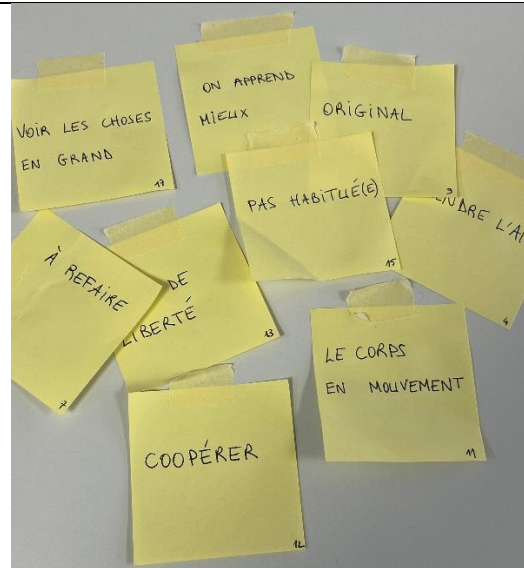 VOIR LES CHOSES
EN GRAND
17
ON APPREND
MIEUX
ORIGINAL
9
PAS HABITUÉ(E)
15
NDRE L'A
4
À REFAIRE
7
DE
LIBERTÉ
13
LE CORPS
EN MOUVEMENT
11
COOPÉRER
12